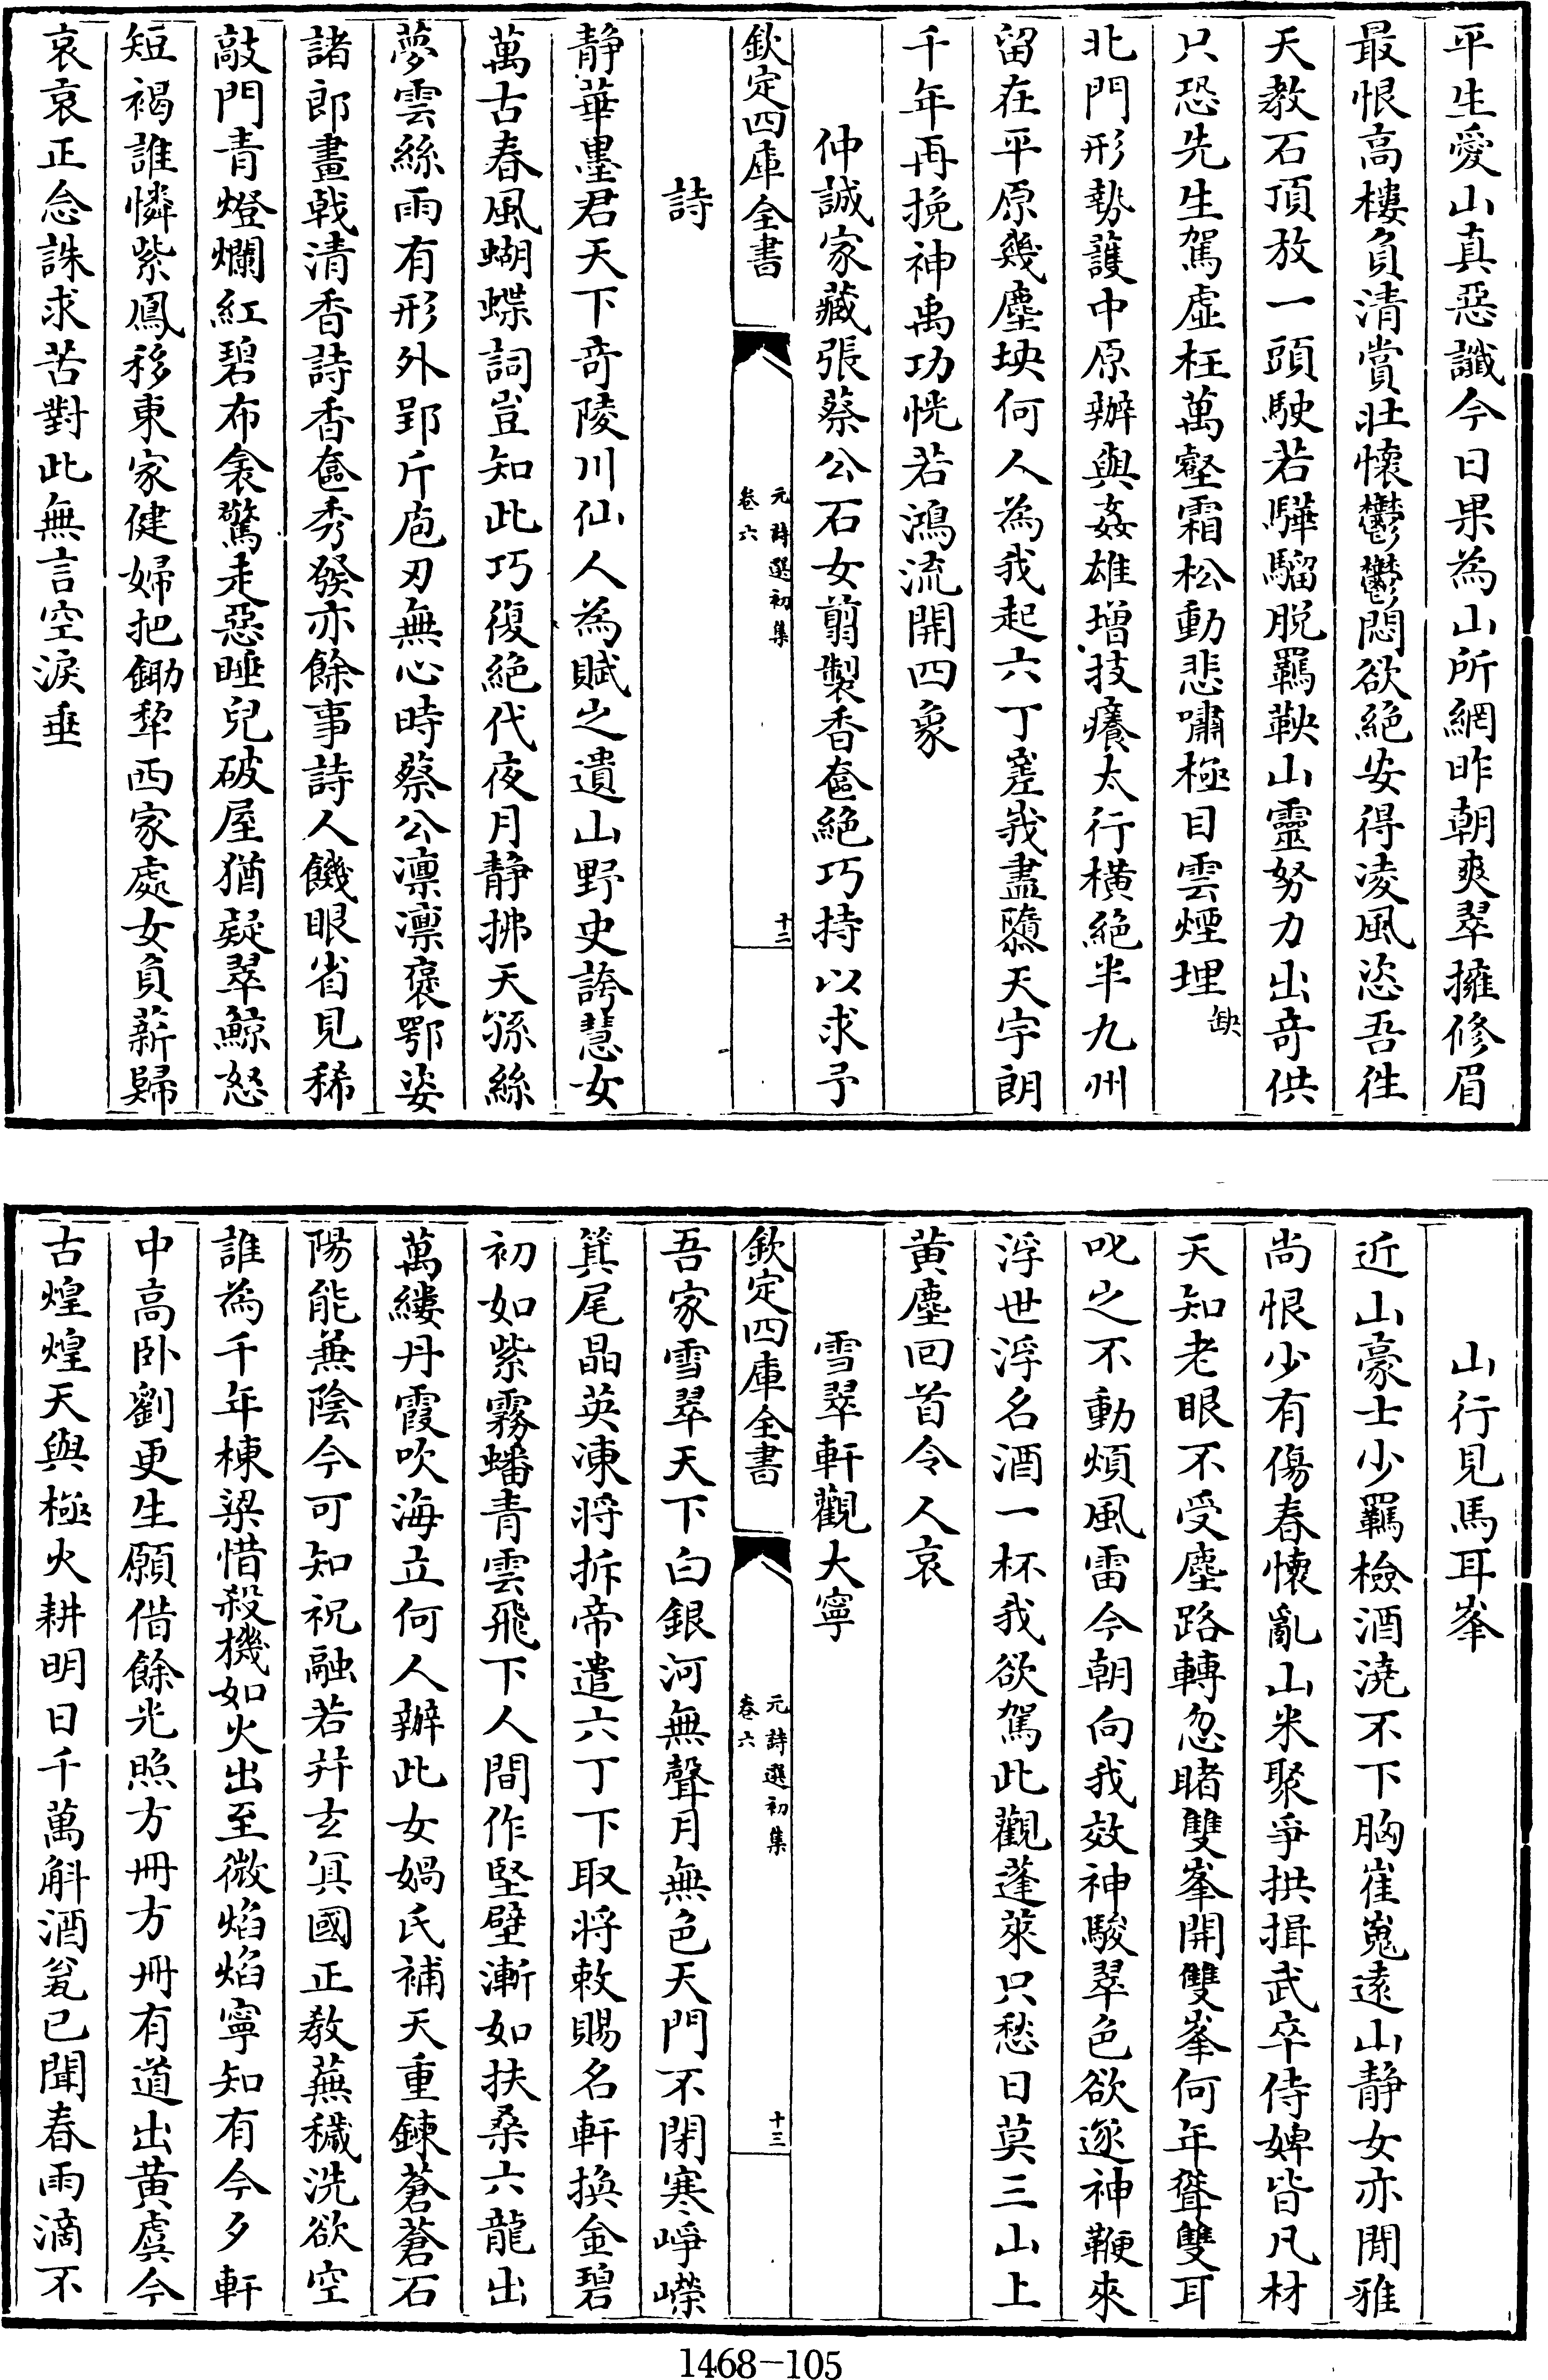 平生愛山真惡讖今日果為山所網昨朝爽翠擁修眉
最恨高樓負清賞壯懷鬱鬱悶欲絕安得凌風恣吾徃
天教石頂放一頭駛若驊騮脱羈鞅山靈努力出奇供
只恐先生駕虛枉萬壑霜松動悲嘯極目雲煙埋缺
北門形勢護中原辦與姦雄增技癢太行橫絕半九州
留在平原幾塵坱何人為我起六丁嵳我盡隳天宇朗
千年再挽神禹功恍若鴻流開四象
仲誠家藏張蔡公石女剪製香奩絕巧持以求予
欽定四庫全書
元詩選初集
卷六
十二
詩
靜華墨君天下奇陵川仙人為賦之遺山野史誇慧女
萬古春風蝴蝶詞豈知此巧復絕代夜月靜拂天孫絲
夢雲絲雨有形外郢斤庖刃無心時蔡公凜凜褒鄂姿
諸郎畫戟清香詩香奩秀發亦餘事詩人饑眼省見稀
敲門青燈爛紅碧布衾驚走惡睡兒破屋猶疑翠鯨怒
短褐誰憐紫鳳移東家健婦把鋤犂西家處女負薪歸
哀哀正念誅求苦對此無言空淚垂
山行見馬耳峯
近山豪士少羈檢酒澆不下胸崔嵬遠山靜女亦閒雅
尚恨少有傷春懷亂山米聚爭拱揖武卒侍婢皆凡材
天知老眼不受塵路轉忽睹雙峯開雙峯何年聳雙耳
叱之不動煩風雷今朝向我效神駿翠色欲逐神鞭來
浮世浮名酒一杯我欲駕此觀蓬萊只愁日莫三山上
黃塵回首令人哀
雪翠軒觀大寧
欽定四庫全書
元詩選初集
卷六
十三
吾家雪翠天下白銀河無聲月無色天門不閉寒崢嶸
箕尾晶英凍將拆帝遣六丁下取將敕賜名軒換金碧
初如紫霧蟠青雲飛下人間作堅壁漸如扶桑六龍出
萬縷丹霞吹海立何人辦此女媧氏補天重鍊蒼蒼石
陽能兼陰今可知祝融若幷玄冥國正教蕪穢洗欲空
誰為千年棟梁惜殺機如火出至微焰焰寧知有今夕軒
中高臥劉更生願借餘光照方冊方冊有道出黃虞今
古煌煌天與極火耕明日千萬斛酒瓮已聞春雨滴不
1468-105